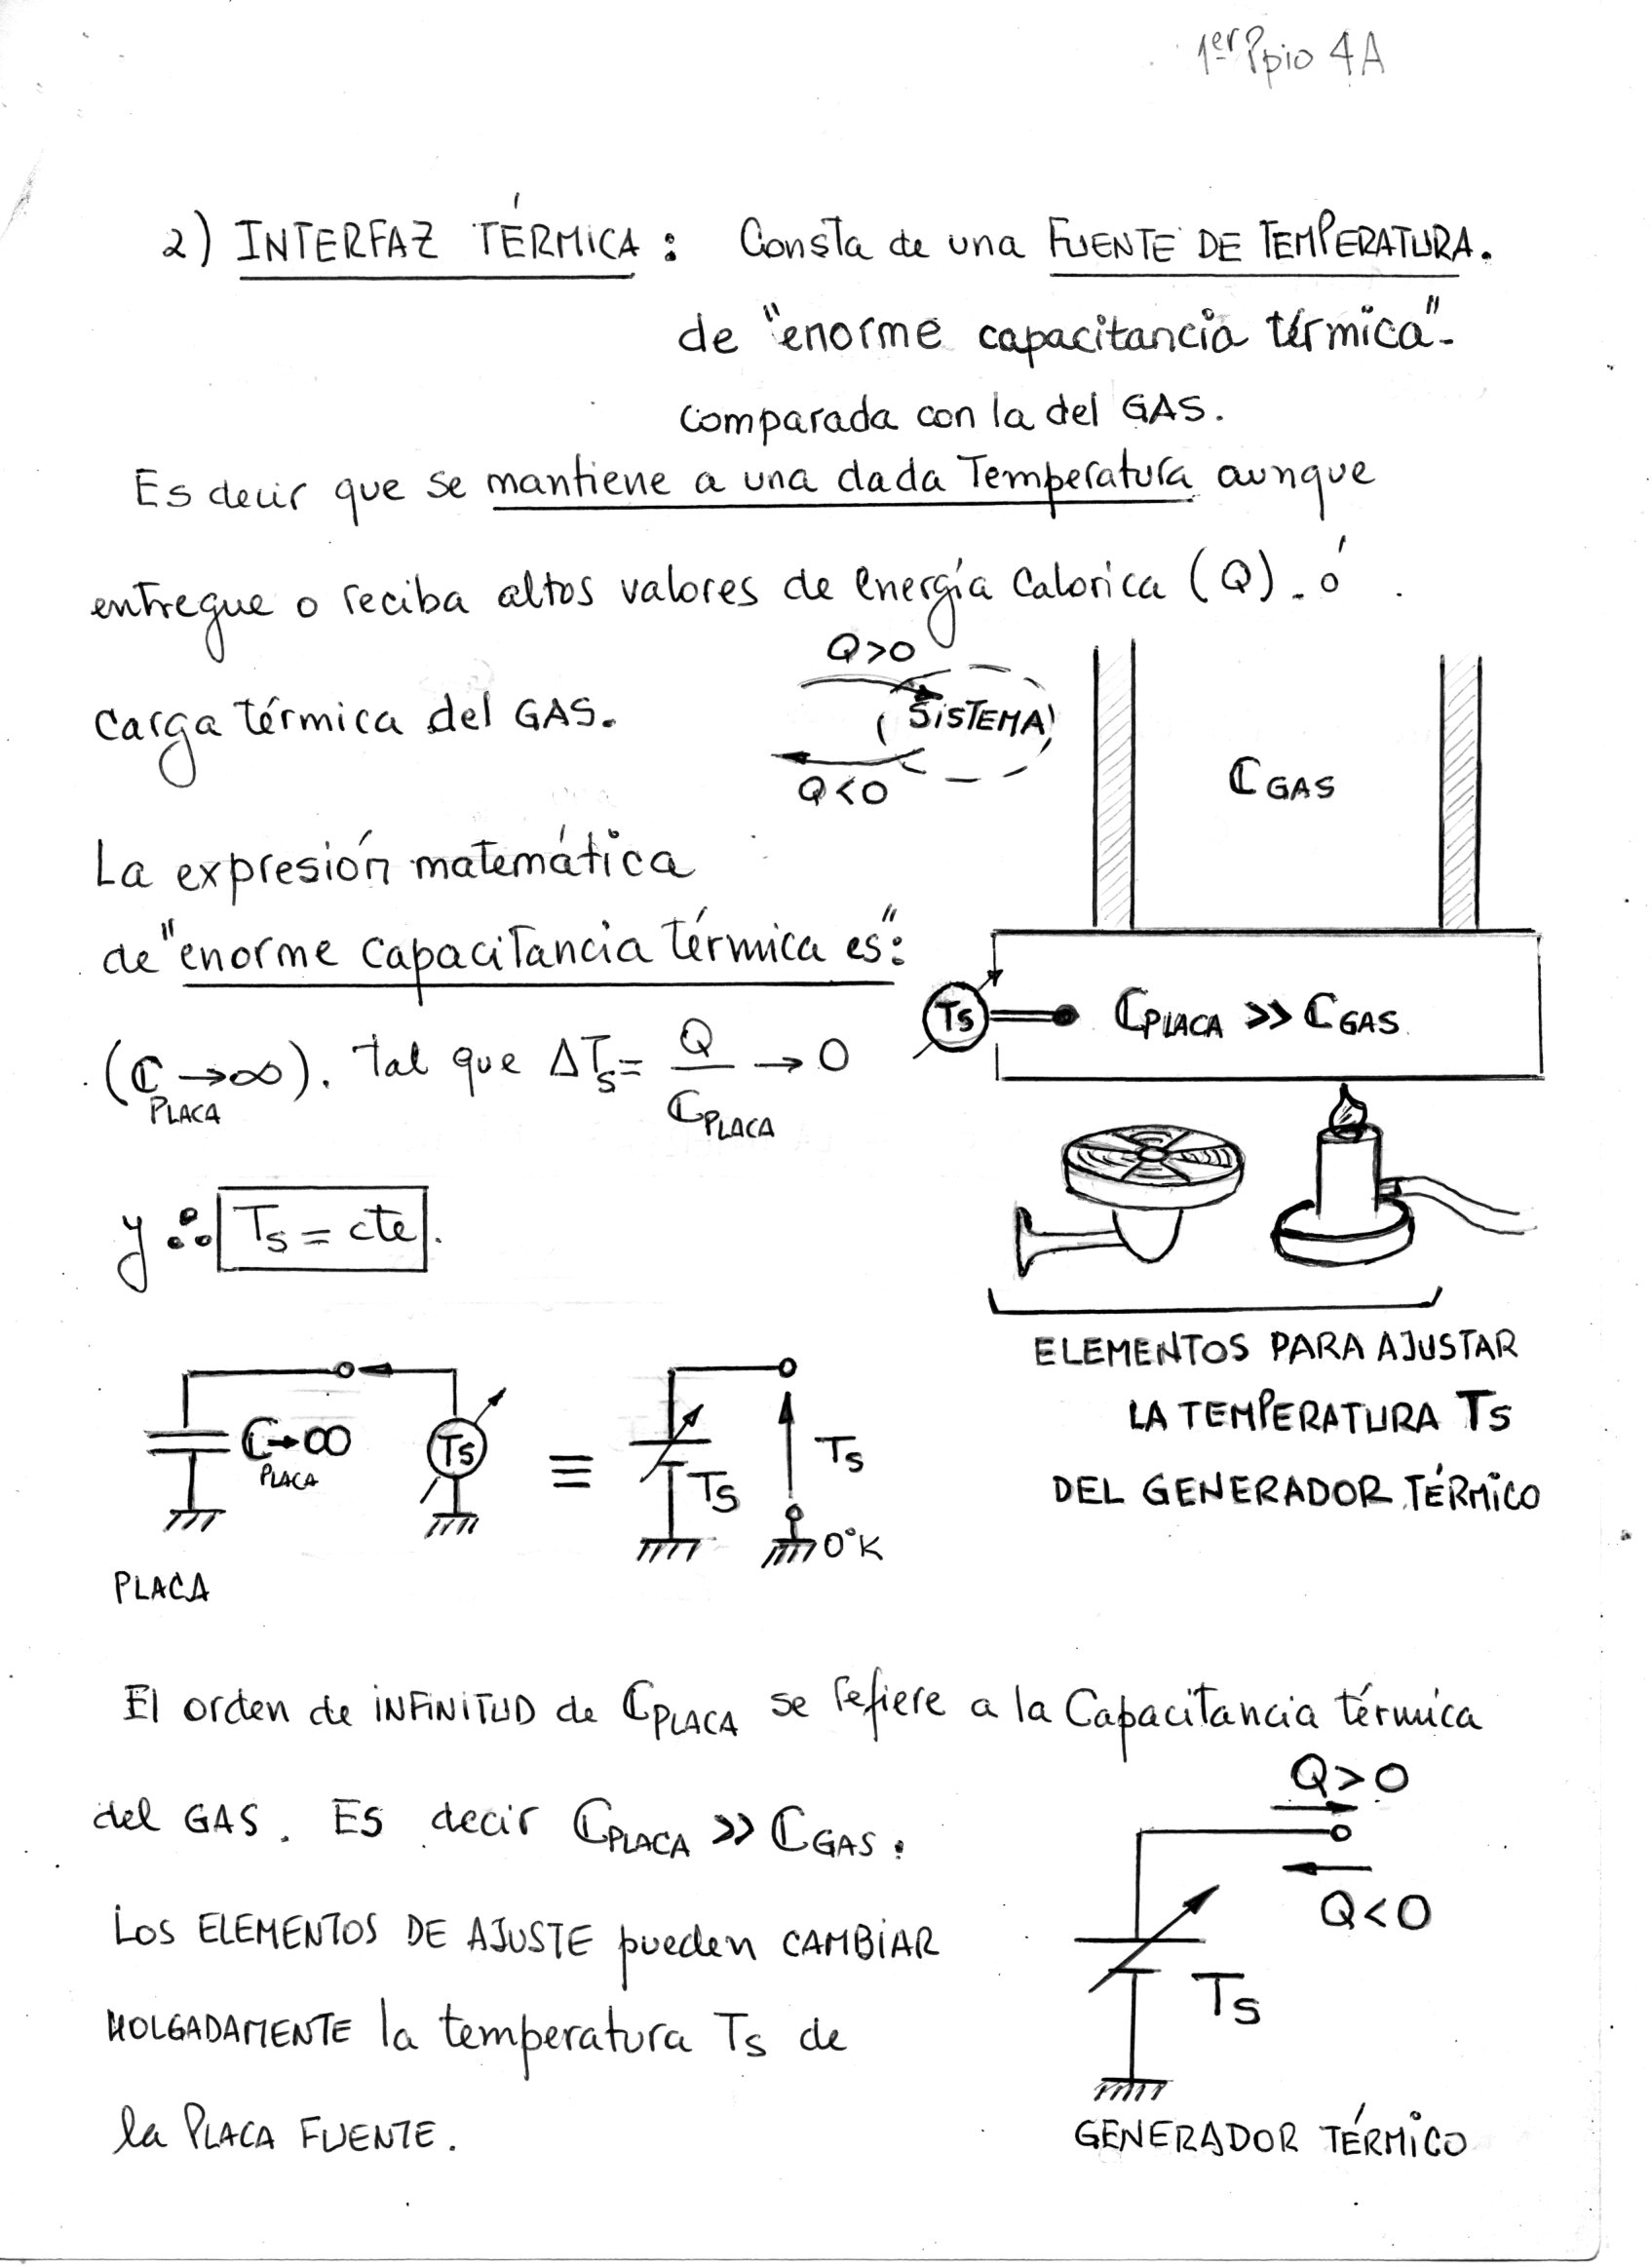 1er Ppio 4A
2) INTERFAZ TÉRMICA: Consta de una FUENTE DE TEMPERATURA.
de "enorme capacitancia térmica"-
comparada con la del GAS.
Es decir que se mantiene a una dada Temperatura aunque
entregue o reciba altos valores de energía Calorica (Q). ó
carga térmica del GAS.
Q>0
SISTEMA
Q<0
C GAS
La expresión matemática
de "enorme capacitancia térmica es":
Ts
C PLACA >> C GAS
(C PLACA → ∞). tal que ΔTs = Q / C PLACA → 0
y ∴ Ts = cte.
ELEMENTOS PARA AJUSTAR
LA TEMPERATURA Ts
DEL GENERADOR TÉRMICO
C PLACA → ∞
Ts
≡
Ts
Ts
0°K
PLACA
El orden de INFINITUD de C PLACA se refiere a la Capacitancia térmica
del GAS. ES decir C PLACA >> C GAS.
Q>0
Q<0
Ts
GENERADOR TÉRMICO
LOS ELEMENTOS DE AJUSTE pueden CAMBIAR
HOLGADAMENTE la temperatura Ts de
la PLACA FUENTE.